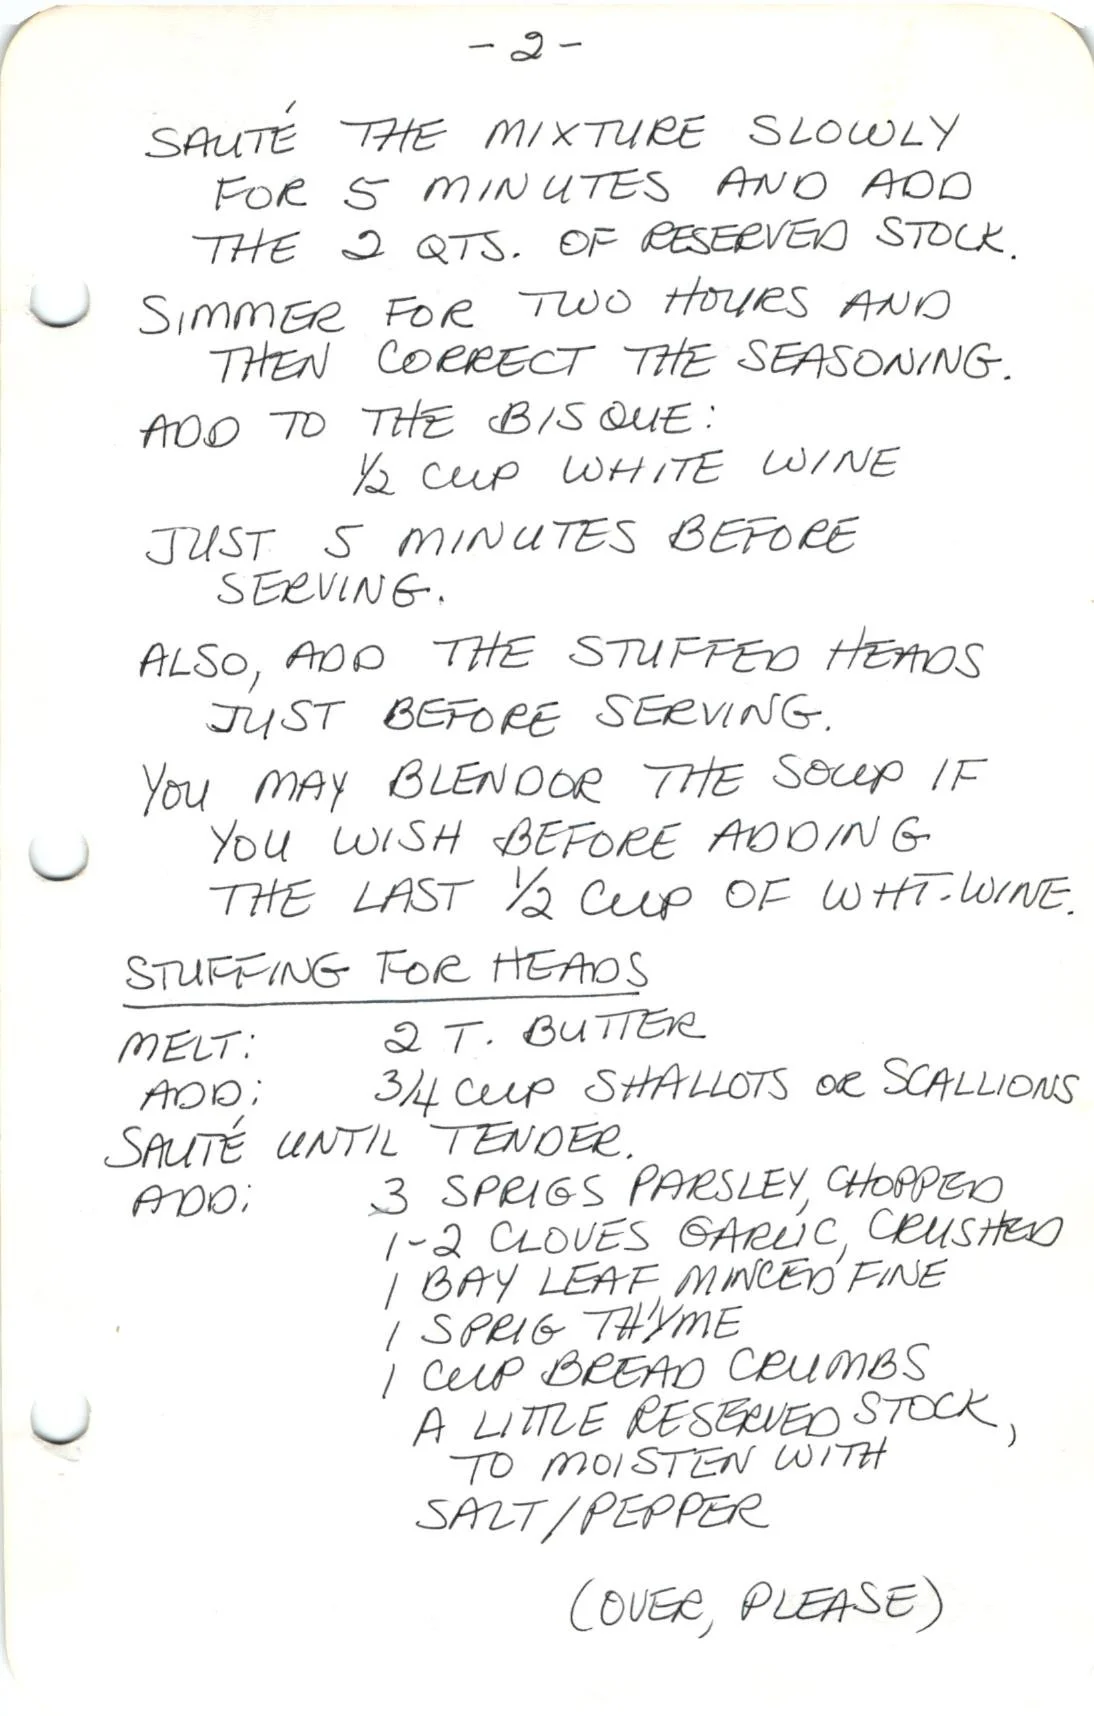 - 2 -
SAUTÉ THE MIXTURE SLOWLY
FOR 5 MINUTES AND ADD
THE 2 QTS. OF RESERVED STOCK.
SIMMER FOR TWO HOURS AND
THEN CORRECT THE SEASONING.
ADD TO THE BISQUE:
1/2 CUP WHITE WINE
JUST 5 MINUTES BEFORE
SERVING.
ALSO, ADD THE STUFFED HEADS
JUST BEFORE SERVING.
YOU MAY BLENDOR THE SOUP IF
YOU WISH BEFORE ADDING
THE LAST 1/2 CUP OF WHT-WINE.
STUFFING FOR HEADS
MELT: 2 T. BUTTER
ADD: 3/4 CUP SHALLOTS OR SCALLIONS
SAUTÉ UNTIL TENDER.
ADD: 3 SPRIGS PARSLEY, CHOPPED
1-2 CLOVES GARLIC, CRUSHED
1 BAY LEAF, MINCED FINE
1 SPRIG THYME
1 CUP BREAD CRUMBS
A LITTLE RESERVED STOCK,
TO MOISTEN WITH
SALT/PEPPER
(OVER, PLEASE)